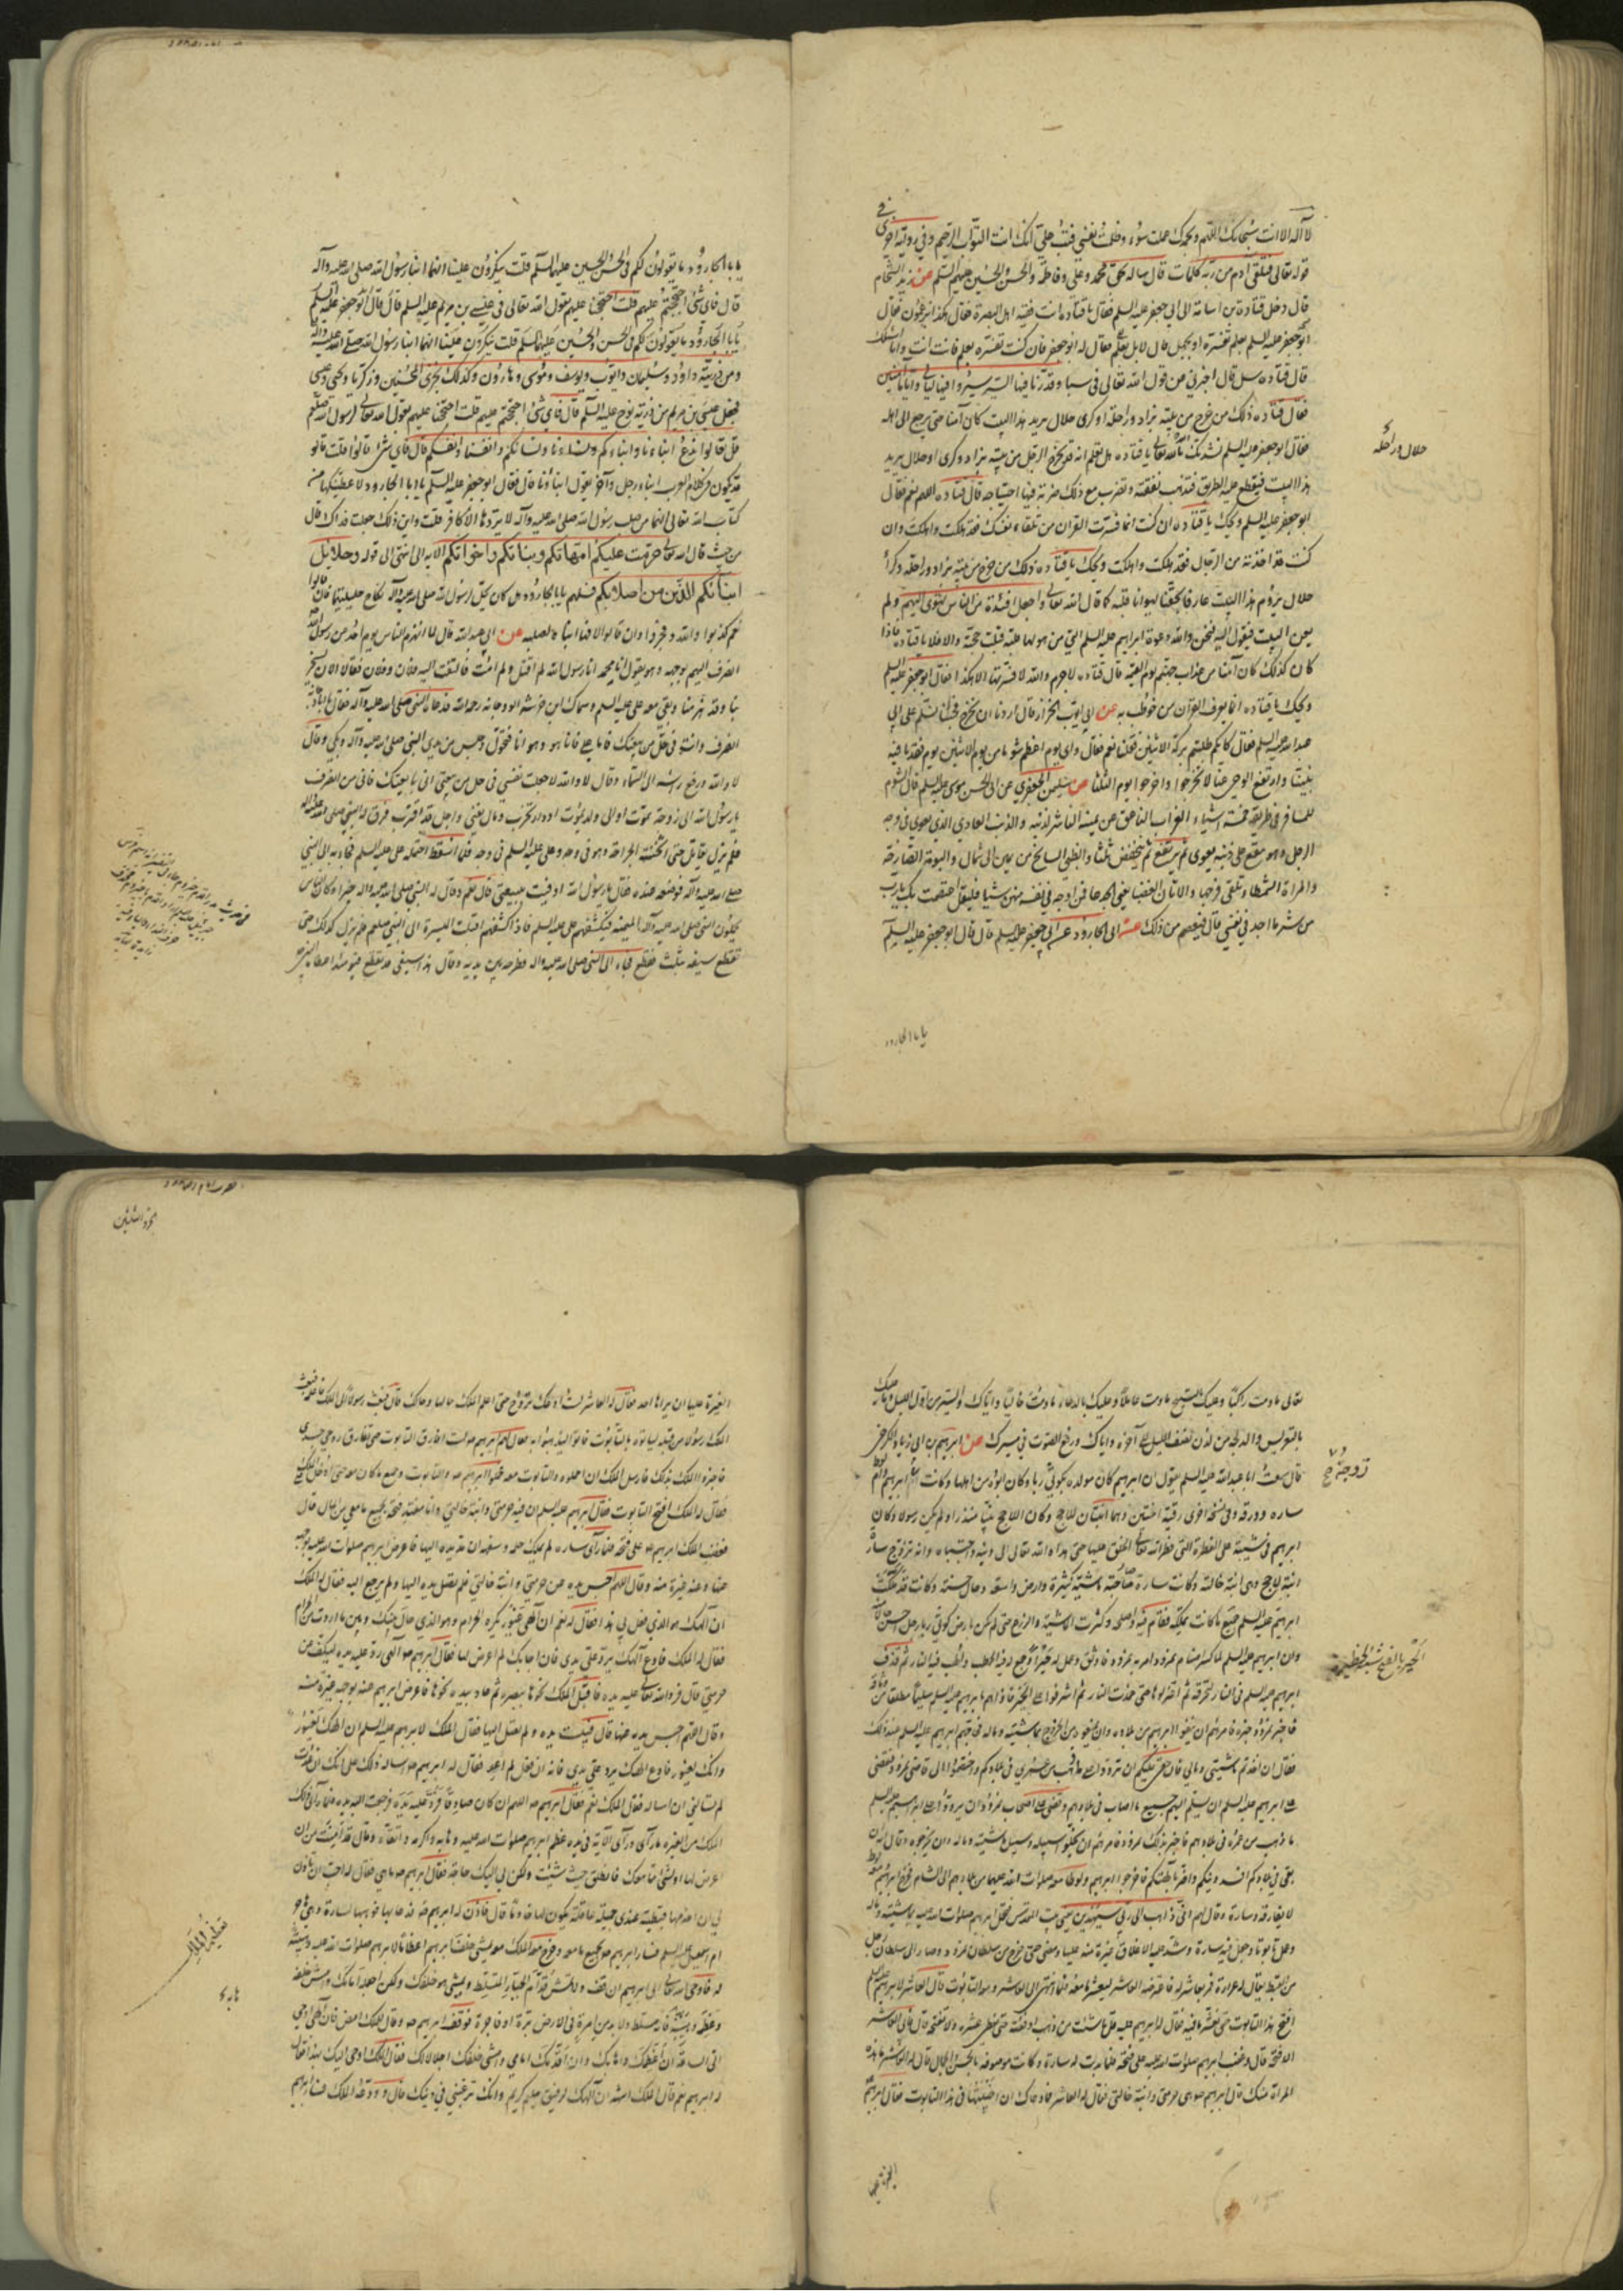 لا اله الا انت سبحانك اللهم وبحمدك عملت سوء وظلمت نفسي فتب علي انك انت التواب الرحيم وفي رواية اخرى في
قوله تعالى فتلقى آدم من ربه كلمات قال ساله بحق محمد وعلي وفاطمة والحسن والحسين عليهم السلم عن زيد الشحام
قال دخل قتادة بن ... الى ابي جعفر عليه السلم فقال يا قتادة انت فقيه اهل البصرة فقال هكذا يزعمون فقال
ابو جعفر عليه السلم بعلم تفسره او بجهل قال لا بل بعلم فقال له ابو جعفر فان كنت تفسره بعلم فانت انت وانا اسئلك
قال قتاده سل قال اخبرني عن قول الله تعالى في سبا وقدرنا فيها السير سيروا فيها ليالي واياما آمنين
فقال قتاده ذلك من خرج من بيته بزاد وراحلة او كرى حلال يريد هذا البيت كان آمنا حتى يرجع الى اهله
فقال ابو جعفر عليه السلم نشدتك بالله تعالى يا قتاده هل تعلم انه قد يخرج الرجل من بيته بزاد وكرى او حلال يريد
هذا البيت فيقطع عليه الطريق فتذهب نفقته وتضرب مع ذلك ضربة فيها اجتياحه قال قتاده اللهم نعم فقال
ابو جعفر عليه السلم ويحك يا قتاده ان كنت انما فسرت القران من تلقاء نفسك فقد هلكت واهلكت وان
كنت قد اخذته من الرجال فقد هلكت واهلكت ويحك يا قتاده ذلك من خرج من بيته بزاد وراحلة وكراء
حلال يروم هذا البيت عارفا بحقنا يهوانا قلبه كما قال الله تعالى واجعل افئدة من الناس تهوى اليهم ولم
يعن البيت فيقول اليه فنحن والله دعوة ابراهيم عليه السلم التي من هوانا قلبه قبلت حجته والا فلا يا قتاده فاذا
كان كذلك كان آمنا من عذاب جهنم يوم القيمة قال قتاده لا جرم والله لا فسرتها الا هكذا فقال ابو جعفر عليه السلم
ويحك يا قتاده انما يعرف القرآن من خوطب به عن ابي ايوب الخزاز قال اردنا ان نخرج فجئنا نسلم على ابي
عبد الله عليه السلم فقال كانكم طلبتم بركة الاثنين فقلنا نعم فقال واي يوم اعظم شوما من يوم الاثنين يوم فقدنا فيه
نبينا وارتفع الوحي عنا لا تخرجوا واخرجوا يوم الثلثا عن سليمن الجعفري عن ابي الحسن موسى عليه السلم قال الشوم
للمسافر في طريقه خمسة اشياء الغراب الناعق عن يمينه الناشر لذنبه والذئب العاوي الذي يعوي في وجه
الرجل وهو مقع على ذنبه يعوي ثم يرتفع ثم ينخفض ثلثا والظبي السانح من يمين الى شمال والبومة الصارخة
والمراة الشمطا تلقى فرجها والاتان العضبا يعني الجدعا فمن اوجس في نفسه منهن شيئا فليقل اعتصمت بك يا رب
من شر ما اجد في نفسي قال فيعصم من ذلك عن ابي الجارود عن ابي جعفر عليه السلم قال قال ابو جعفر عليه السلم
يا با الجارود
حلال وراحلة
يا با الجارود ما يقولون لكم في الحسن والحسين عليهما السلم قلت ينكرون علينا انهما ابنا رسول الله صلى الله عليه وآله
قال فاي شئ احتججتم عليهم قلت احتججنا عليهم بقول الله تعالى في عيسى بن مريم عليه السلم قال قال ابو جعفر عليه السلم
يا با الجارود ما يقولون لكم في الحسن والحسين عليهما السلم قلت ينكرون علينا انهما ابنا رسول الله صلى الله عليه وآله
ومن ذريته داود وسليمان وايوب ويوسف وموسى وهارون وكذلك نجزي المحسنين وزكريا ويحيى وعيسى
فجعل عيسى بن مريم من ذرية نوح عليه السلم قال فاي شئ احتججتم عليهم قلت احتججنا عليهم بقول الله تعالى لرسول الله صلعم
قل تعالوا ندع ابناءنا وابناءكم ونساءنا ونساءكم وانفسنا وانفسكم قال فاي شئ قالوا قلت قالوا
قد يكون في كلام العرب ابناء رجل وآخر يقول ابناؤنا قال فقال ابو جعفر عليه السلم يا با الجارود لاعطينكها من
كتاب الله تعالى انهما من صلب رسول الله صلى الله عليه وآله لا يردها الا كافر قلت واين ذلك جعلت فداك قال
من حيث قال الله تعالى حرمت عليكم امهاتكم وبناتكم واخواتكم الآية الى ان انتهى الى قوله وحلائل
ابنائكم الذين من اصلابكم فسلهم يا با الجارود هل كان يحل لرسول الله صلى الله عليه وآله نكاح حليلتيهما فان قالوا
نعم كذبوا والله وفجروا وان قالوا لا فهما ابناه لصلبه عن ابي عبد الله قال لما انهزم الناس يوم احد عن رسول الله
انصرف اليهم بوجهه وهو يقول انا محمد انا رسول الله لم اقتل ولم امت فالتفت اليه فلان وفلان فقالا الان يسخر
بنا وقد هزمنا وبقي معه علي عليه السلم وسماك بن خرشة ابو دجانة رحمه الله فدعاه النبي صلى الله عليه وآله فقال يا ابا دجانة
انصرف وانت في حل من بيعتك فاما علي فانا هو وهو انا فتحول وجلس بين يدي النبي صلى الله عليه وآله وبكى وقال
لا والله ورفع راسه الى السماء وقال لا والله لا جعلت نفسي في حل من بيعتي اني بايعتك فالى من انصرف
يا رسول الله الى زوجة تموت او الى ولد يموت او دار تخرب ومال يفنى واجل قد اقترب فرق له النبي صلى الله عليه وآله
فلم يزل يقاتل حتى اثخنته الجراحة وهو في وجه وعلي عليه السلم في وجه فلما اسقط احتمله علي عليه السلم فجاء به الى النبي
صلى الله عليه وآله فوضعه عنده فقال يا رسول الله اوفيت ببيعتي قال نعم وقال له النبي صلى الله عليه وآله خيرا وكان الناس
يحملون على النبي صلى الله عليه وآله الميمنة فيكشفهم علي عليه السلم فاذا كشفهم اقبلت الميسرة الى النبي صلعم فلم يزل كذلك حتى
تقطع سيفه بثلث قطع فجاء الى النبي صلى الله عليه وآله فطرحه بين يديه وقال هذا سيفي قد تقطع فيومئذ اعطاه النبي
تعالى ما دمت راكبا وعليك بالتسبيح ما دمت عاملا وعليك بالدعاء ما دمت خاليا واياك والسير من اول الليل وعليك
بالتعريس والدلجة من لدن نصف الليل الى آخره واياك ورفع الصوت في مسيرك عن ابراهيم بن ابي زياد الكرخي
قال سمعت ابا عبد الله عليه السلم يقول ان ابراهيم كان مولده بكوثى ربا وكان ابوه من اهلها وكانت ام ابراهيم وام لوط
ساره وورقه وفي نسخة اخرى رقية اختين وهما ابنتان للاحج وكان اللاحج نبيا منذرا ولم يكن رسولا وكان
ابراهيم في شبيبته على الفطرة التي فطر الله تعالى الخلق عليها حتى هداه الله تعالى الى دينه واجتباه وانه تزوج سارة
ابنة لاحج وهي ابنة خالته وكانت سارة صاحبة ماشية كثيرة وارض واسعة وحال حسنة وكانت قد ملكت
ابراهيم عليه السلم جميع ما كانت تملكه فقام فيه واصلحه وكثرت الماشية والزرع حتى لم يكن بارض كوثى ربا رجل احسن حالا منه
وان ابراهيم عليه السلم لما كسر اصنام نمرود وامر به نمرود فاوثق وعمل له حيرا وجمع له فيه الحطب والهب فيه النار ثم قذف
ابراهيم عليه السلم في النار لتحرقه ثم اعتزلوها حتى خمدت النار ثم اشرفوا على الحير فاذا هم بابراهيم عليه السلم سليما مطلقا من وثاقه
فاخبر نمرود خبره فامرهم ان ينفوا ابراهيم من بلاده وان يمنعوه من الخروج بماشيته وماله فحاجهم ابراهيم عليه السلم عند ذلك
فقال ان اخذتم ماشيتي ومالي فان حقي عليكم ان تردوا علي ما ذهب من عمري في بلادكم واختصموا الى قاضي نمرود فقضى
على ابراهيم عليه السلم ان يسلم اليهم جميع ما اصاب في بلادهم وقضى على اصحاب نمرود ان يردوا على ابراهيم عليه السلم
ما ذهب من عمره في بلادهم فاخبر بذلك نمرود فامرهم ان يخلوا سبيله وسبيل ماشيته وماله وان يخرجوه وقال انه ان
بقي في بلادكم افسد دينكم واضر بآلهتكم فاخرجوا ابراهيم ولوطا معه صلوات الله عليهما من بلادهم الى الشام فخرج ابراهيم ومعه لوط
لا يفارقه وسارة وقال لهم اني ذاهب الى ربي سيهدين يعني بيت المقدس فتحمل ابراهيم صلوات الله عليه بماشيته وماله
وعمل تابوتا وجعل فيه سارة وشد عليه الاغلاق غيرة منه عليها ومضى حتى خرج من سلطان نمرود وصار الى سلطان رجل
من القبط يقال له عرارة فمر بعاشر له فاعترضه العاشر ليعشر ما معه فلما انتهى الى العاشر ومعه التابوت قال العاشر لابراهيم عليه السلم
افتح هذا التابوت حتى نعشر ما فيه فقال له ابراهيم عليه قل ما شئت من ذهب او فضة حتى نعطي عشره ولا نفتحه قال فابى العاشر
الا فتحه قال وغضب ابراهيم صلوات الله عليه على فتحه فلما بدت له سارة وكانت موصوفة بالحسن والجمال قال له العاشر ما هذه
المراة منك قال ابراهيم هي حرمتي وابنة خالتي فقال له العاشر فما دعاك الى ان خبيتها في هذا التابوت فقال ابراهيم
الغيرة عليها
زوجة خ
الحير بالفتح شبه الحظيرة
الغيرة عليها ان يراها احد فقال له العاشر لست ادعك تبرح حتى اعلم الملك حالها وحالك قال فبعث رسولا الى الملك فاعلمه فبعث
الملك رسولا من قبله لياتوه بالتابوت فاتوا ليذهبوا به فقال لهم ابراهيم لست افارق التابوت حتى تفارق روحي جسدي
فاخبروا الملك بذلك فارسل الملك ان احملوه والتابوت معه فحملوا ابراهيم والتابوت وجميع ما كان معه حتى ادخل على الملك
فقال له الملك افتح التابوت فقال ابراهيم عليه السلم ان فيه حرمتي وابنة خالتي وانا مفتد فتحه بجميع ما معي من المال قال
فغصب الملك ابراهيم على فتحه فلما رآى سارة لم يملك حلمه وسفهه ان مد يده اليها فاعرض ابراهيم صلوات الله عليه بوجهه
عنها وعنه غيرة منه وقال اللهم احبس يده عن حرمتي وابنة خالتي فلم تصل يده اليها ولم يرجع اليه فقال له الملك
ان الهك هو الذي فعل بي هذا فقال له نعم ان الهي غيور يكره الحرام وهو الذي حال بينك وبين ما اردت من الحرام
فقال له الملك فادع الهك يرد علي يدي فان اجابك لم اعرض لها فقال ابراهيم الهي رد عليه يده ليكف عن
حرمتي قال فرد الله تعالى عليه يده فاقبل الملك نحوها ببصره ثم عاد بيده نحوها فاعرض ابراهيم عنه بوجهه غيرة منه
وقال اللهم احبس يده عنها قال فيبست يده ولم تصل اليها فقال الملك لابراهيم عليه السلم ان الهك لغيور
وانك لغيور فادع الهك يرد علي يدي فانه ان فعل لم اعد فقال له ابراهيم اساله ذلك على انك ان عدت
لم تسالني ان اساله فقال الملك نعم فقال ابراهيم اللهم ان كان صادقا فرد عليه يده فرجعت اليه يده فلما رآى ذلك
الملك من الغيرة ما رآى ورآى الآية في يده عظم ابراهيم صلوات الله عليه وهابه واكرمه واتقاه وقال قد امنت من ان
اعرض لها او لشئ مما معك فانطلق حيث شئت ولكن لي اليك حاجة فقال ابراهيم ما هي فقال له احب ان تاذن
لي ان اخدمها قبطية عندي جميلة عاقلة تكون لها خادما قال فاذن له ابراهيم فدعا بها فوهبها لسارة وهي هاجر
ام اسمعيل عليه السلم فسار ابراهيم بجميع ما معه وخرج معه الملك يمشي خلف ابراهيم اعظاما لابراهيم صلوات الله عليه وهيبة
له فاوحى الله تعالى الى ابراهيم ان قف ولا تمش قدام الجبار المتسلط ويمشي هو خلفك ولكن اجعله امامك وامش خلفه
وعظمه وهبه فانه مسلط ولا بد من امرة في الارض برة او فاجرة فوقف ابراهيم وقال للملك امض فان الهي اوحى
الي الساعة ان اعظمك واهابك وان اقدمك امامي وامشي خلفك اجلالا لك فقال الملك اوحى اليك بهذا فقال
له ابراهيم نعم قال الملك اشهد ان الهك لرفيق حليم كريم وانك ترغبني في دينك قال وودعه الملك فسار ابراهيم